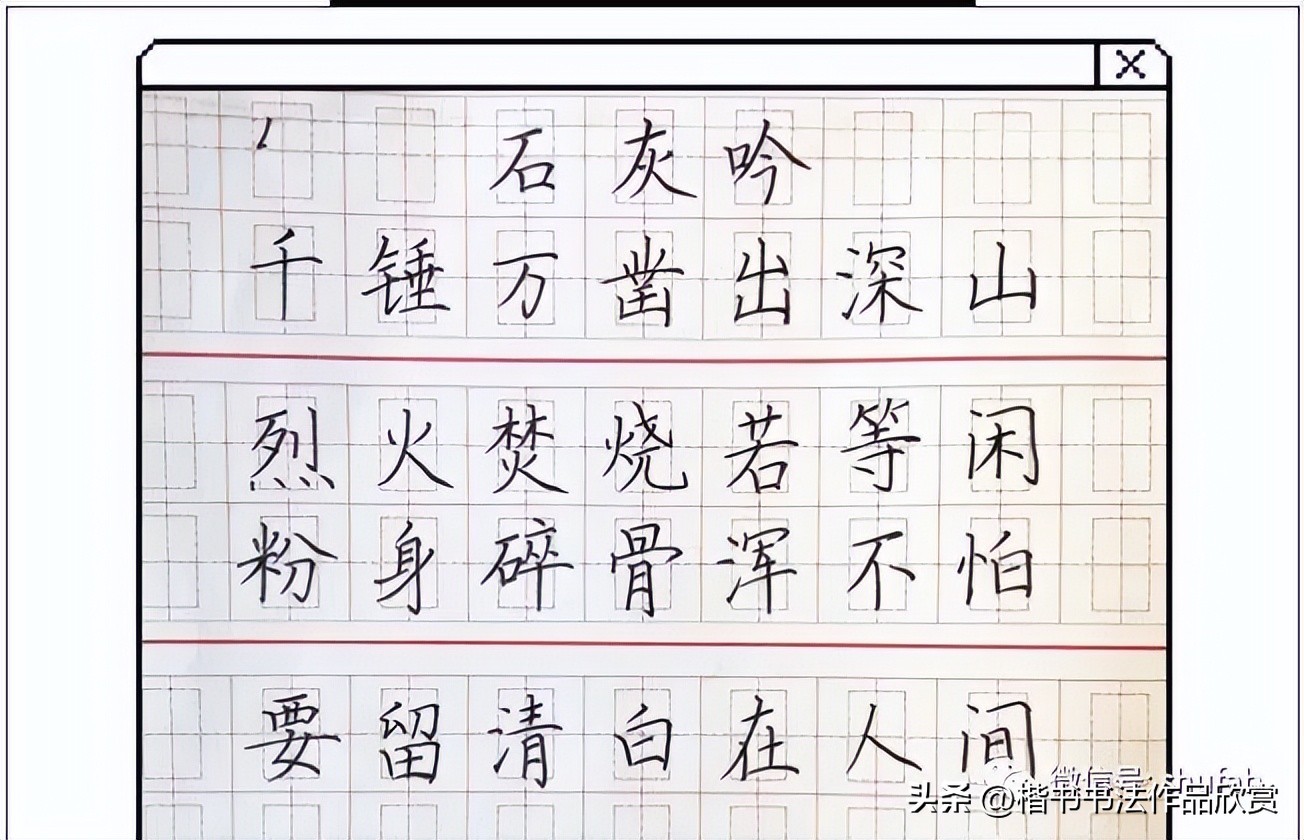 石灰吟
千锤万凿出深山
烈火焚烧若等闲
粉身碎骨浑不怕
要留清白在人间
微信号: shufab
头条 @楷书书法作品欣赏